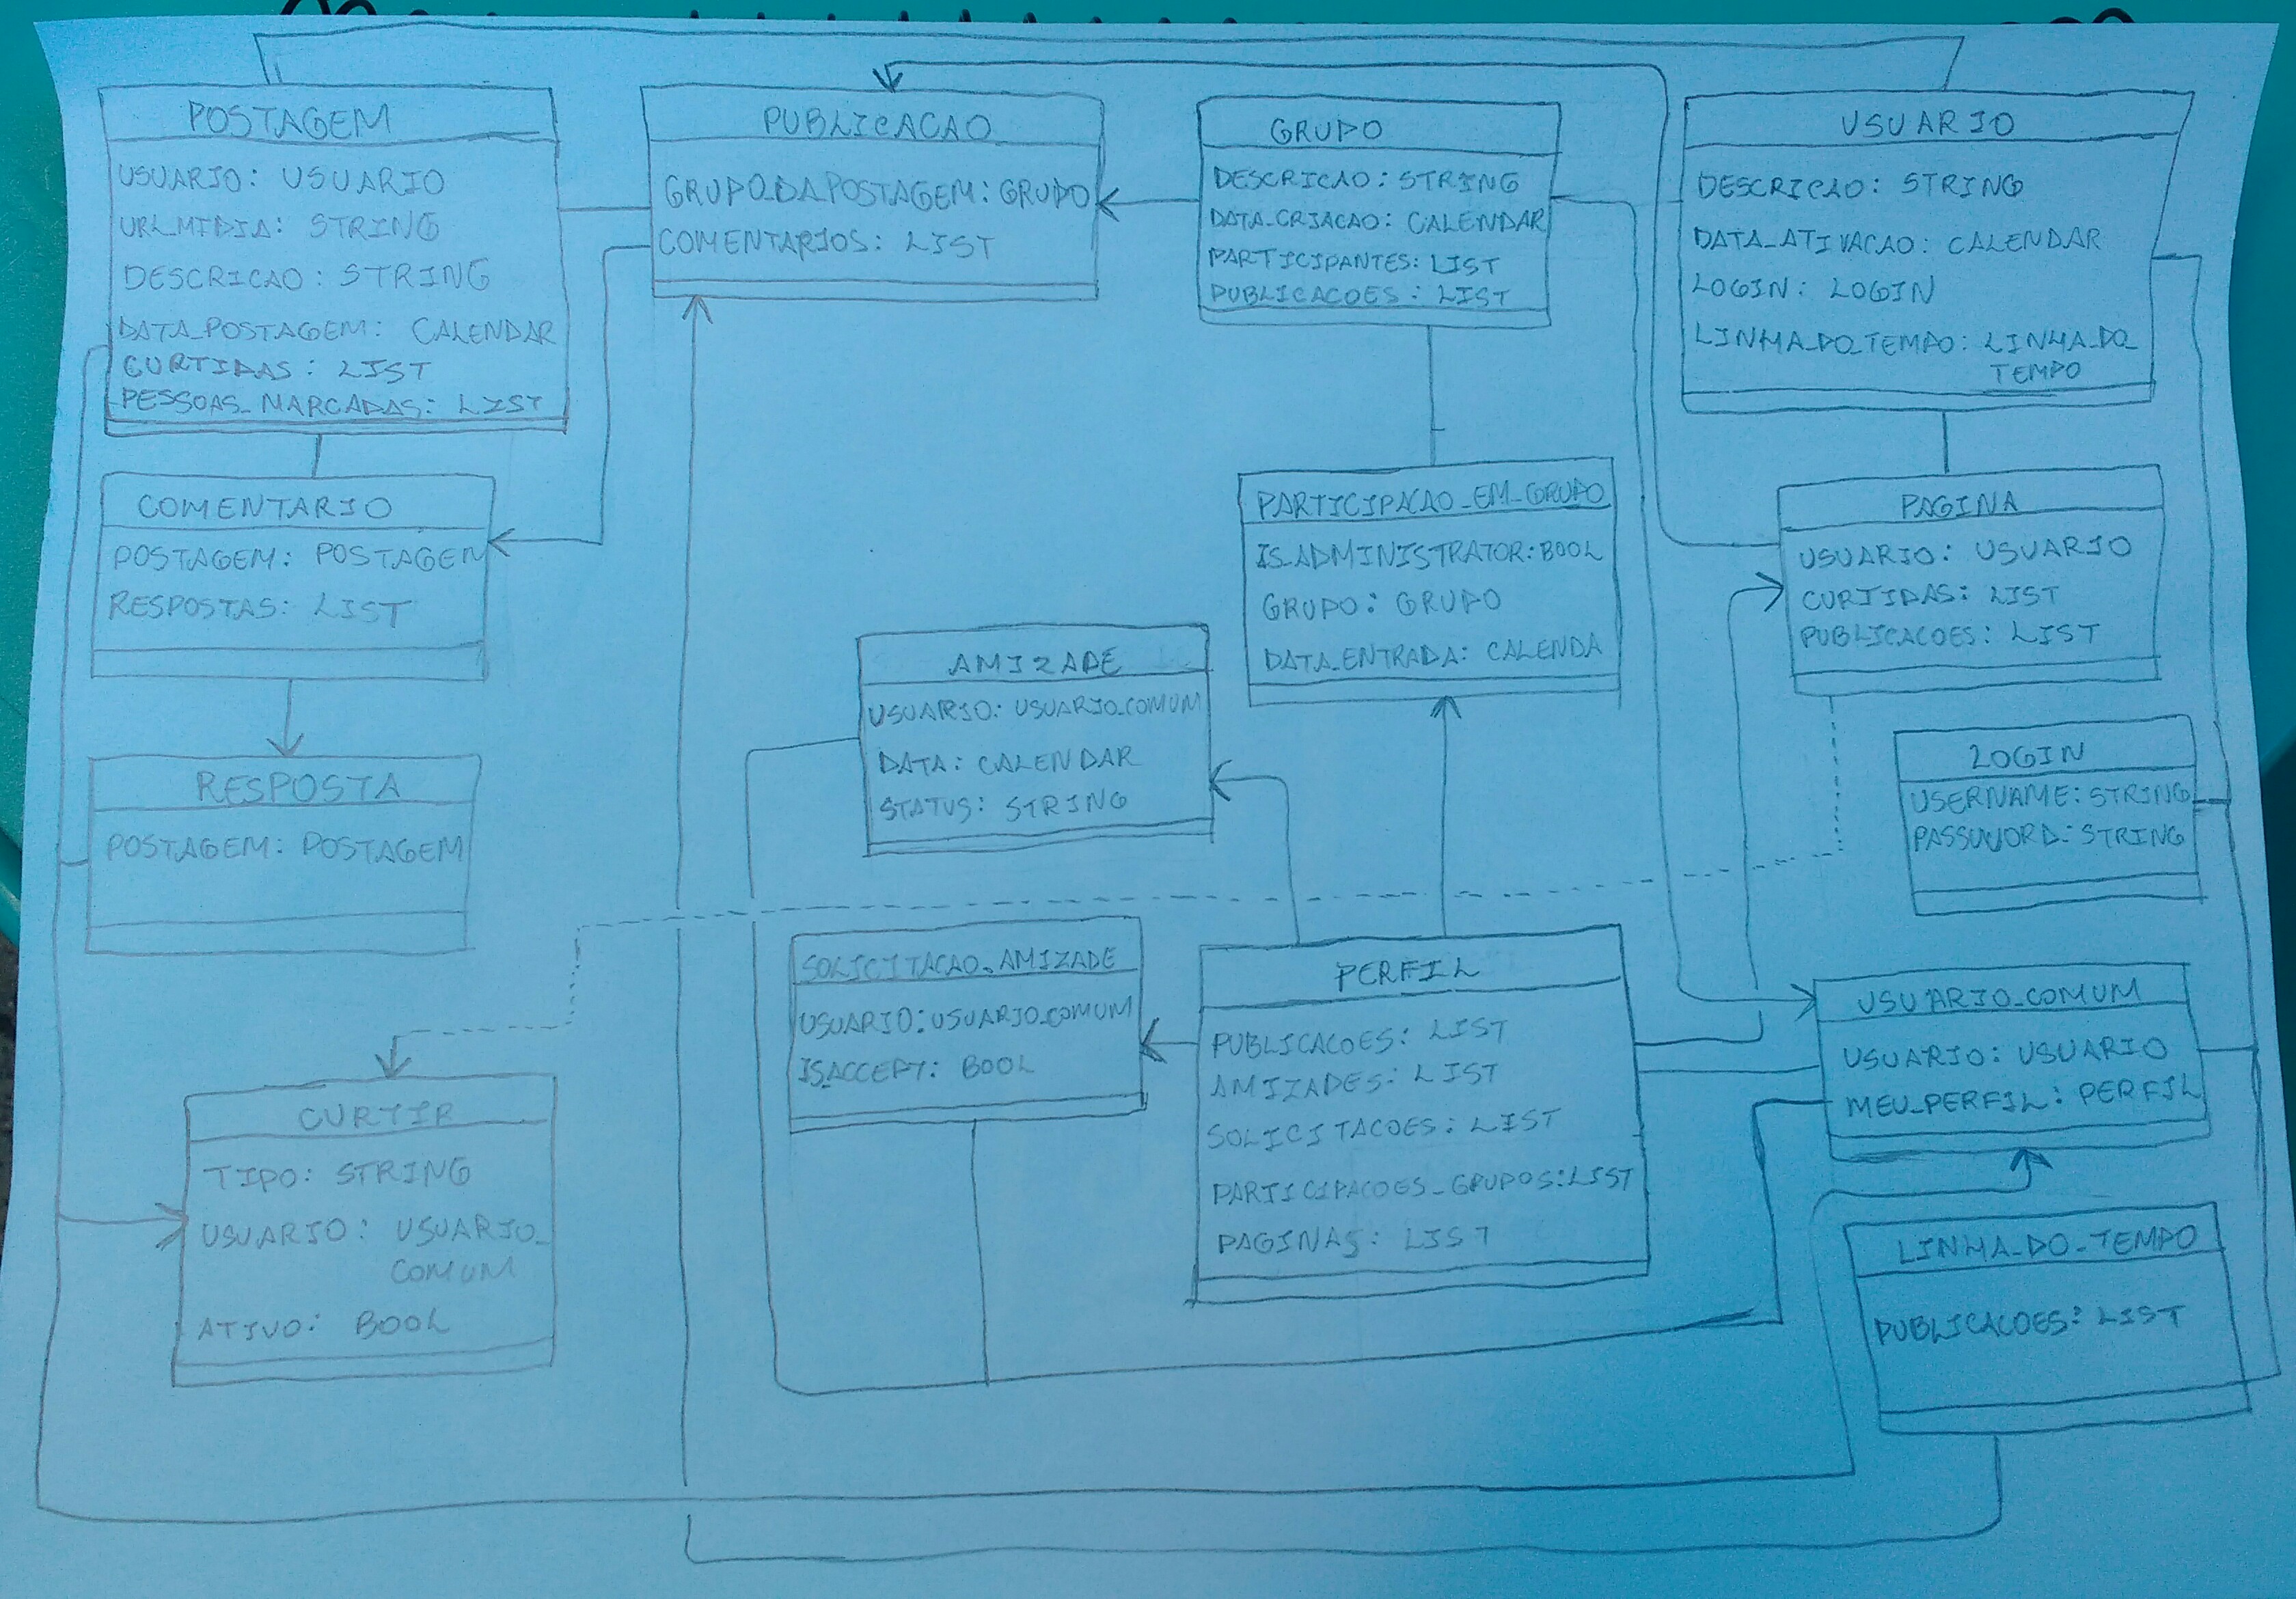 POSTAGEM
USUARIO: USUARIO
URL_MIDIA: STRING
DESCRICAO: STRING
DATA_POSTAGEM: CALENDAR
CURTIDAS: LIST
PESSOAS_MARCADAS: LIST
PUBLICACAO
GRUPO_DA_POSTAGEM: GRUPO
COMENTARIOS: LIST
GRUPO
DESCRICAO: STRING
DATA_CRIACAO: CALENDAR
PARTICIPANTES: LIST
PUBLICACOES: LIST
USUARIO
DESCRICAO: STRING
DATA_ATIVACAO: CALENDAR
LOGIN: LOGIN
LINHA_DO_TEMPO: LINHA_DO_
TEMPO
COMENTARIO
POSTAGEM: POSTAGEM
RESPOSTAS: LIST
PARTICIPACAO_EM_GRUPO
IS_ADMINISTRATOR: BOOL
GRUPO: GRUPO
DATA_ENTRADA: CALENDA
PAGINA
USUARIO: USUARIO
CURTIDAS: LIST
PUBLICACOES: LIST
AMIZADE
USUARIO: USUARIO_COMUM
DATA: CALENDAR
STATUS: STRING
LOGIN
USERNAME: STRING
PASSWORD: STRING
RESPOSTA
POSTAGEM: POSTAGEM
SOLICITACAO_AMIZADE
USUARIO: USUARIO_COMUM
ISACCEPT: BOOL
PERFIL
PUBLICACOES: LIST
AMIZADES: LIST
SOLICITACOES: LIST
PARTICIPACOES_GRUPOS: LIST
PAGINAS: LIST
USUARIO_COMUM
USUARIO: USUARIO
MEU_PERFIL: PERFIL
CURTIR
TIPO: STRING
USUARIO: USUARIO_
COMUM
ATIVO: BOOL
LINHA_DO_TEMPO
PUBLICACOES: LIST